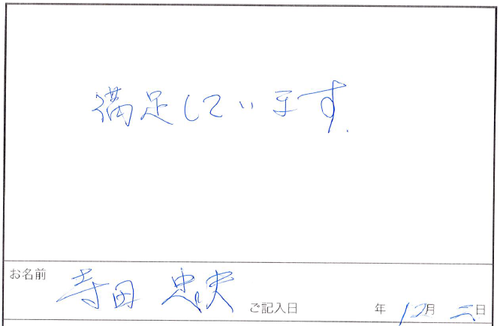 満足しています.
お名前 寺田 忠史 ご記入日 年 12月 二日